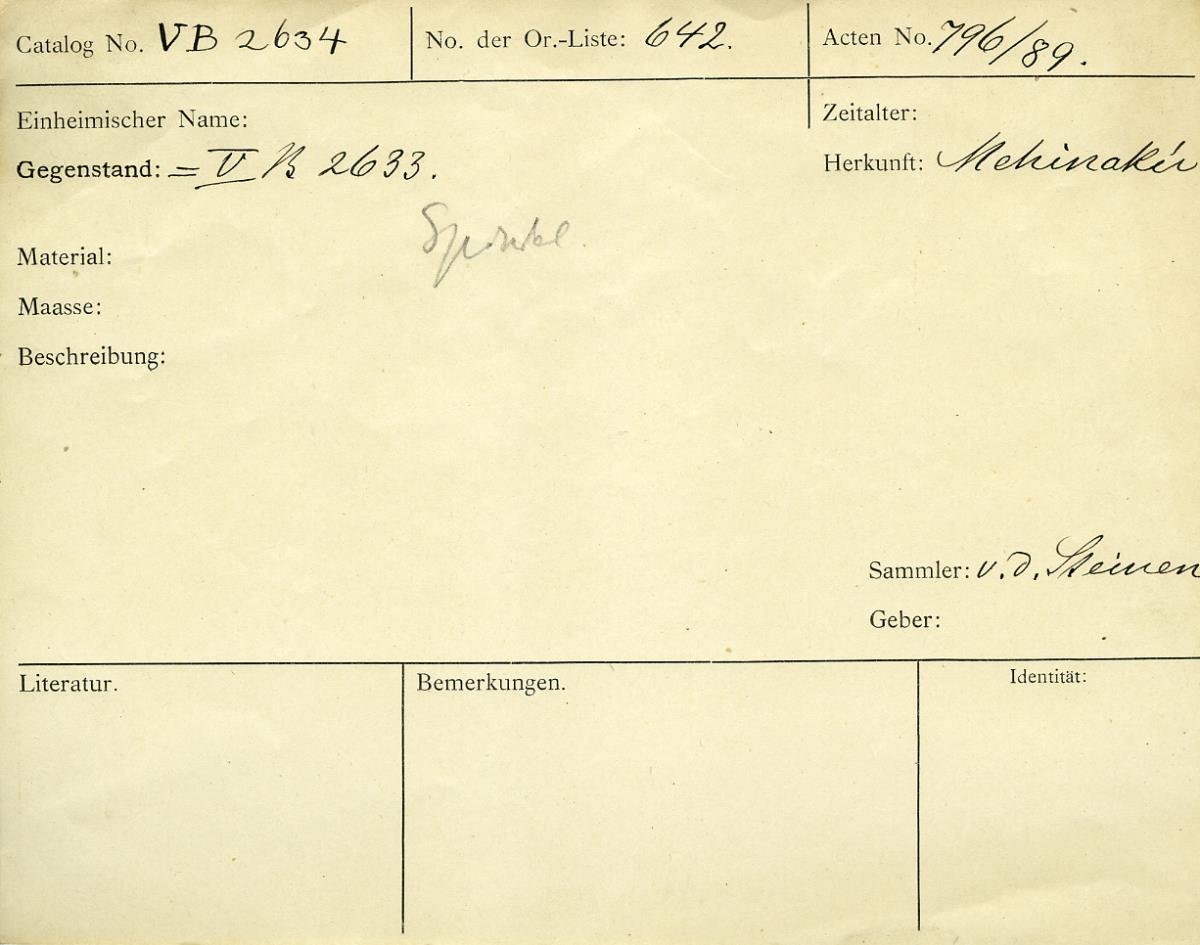 Catalog No. VB 2634
No. der Or.-Liste: 642.
Acten No. 796/89.
Einheimischer Name:
Zeitalter:
Gegenstand: = V B 2633.
Herkunft: Mehinakú
Spindel.
Material:
Maasse:
Beschreibung:
Sammler: v. d. Steinen
Geber:
Literatur.
Bemerkungen.
Identität: